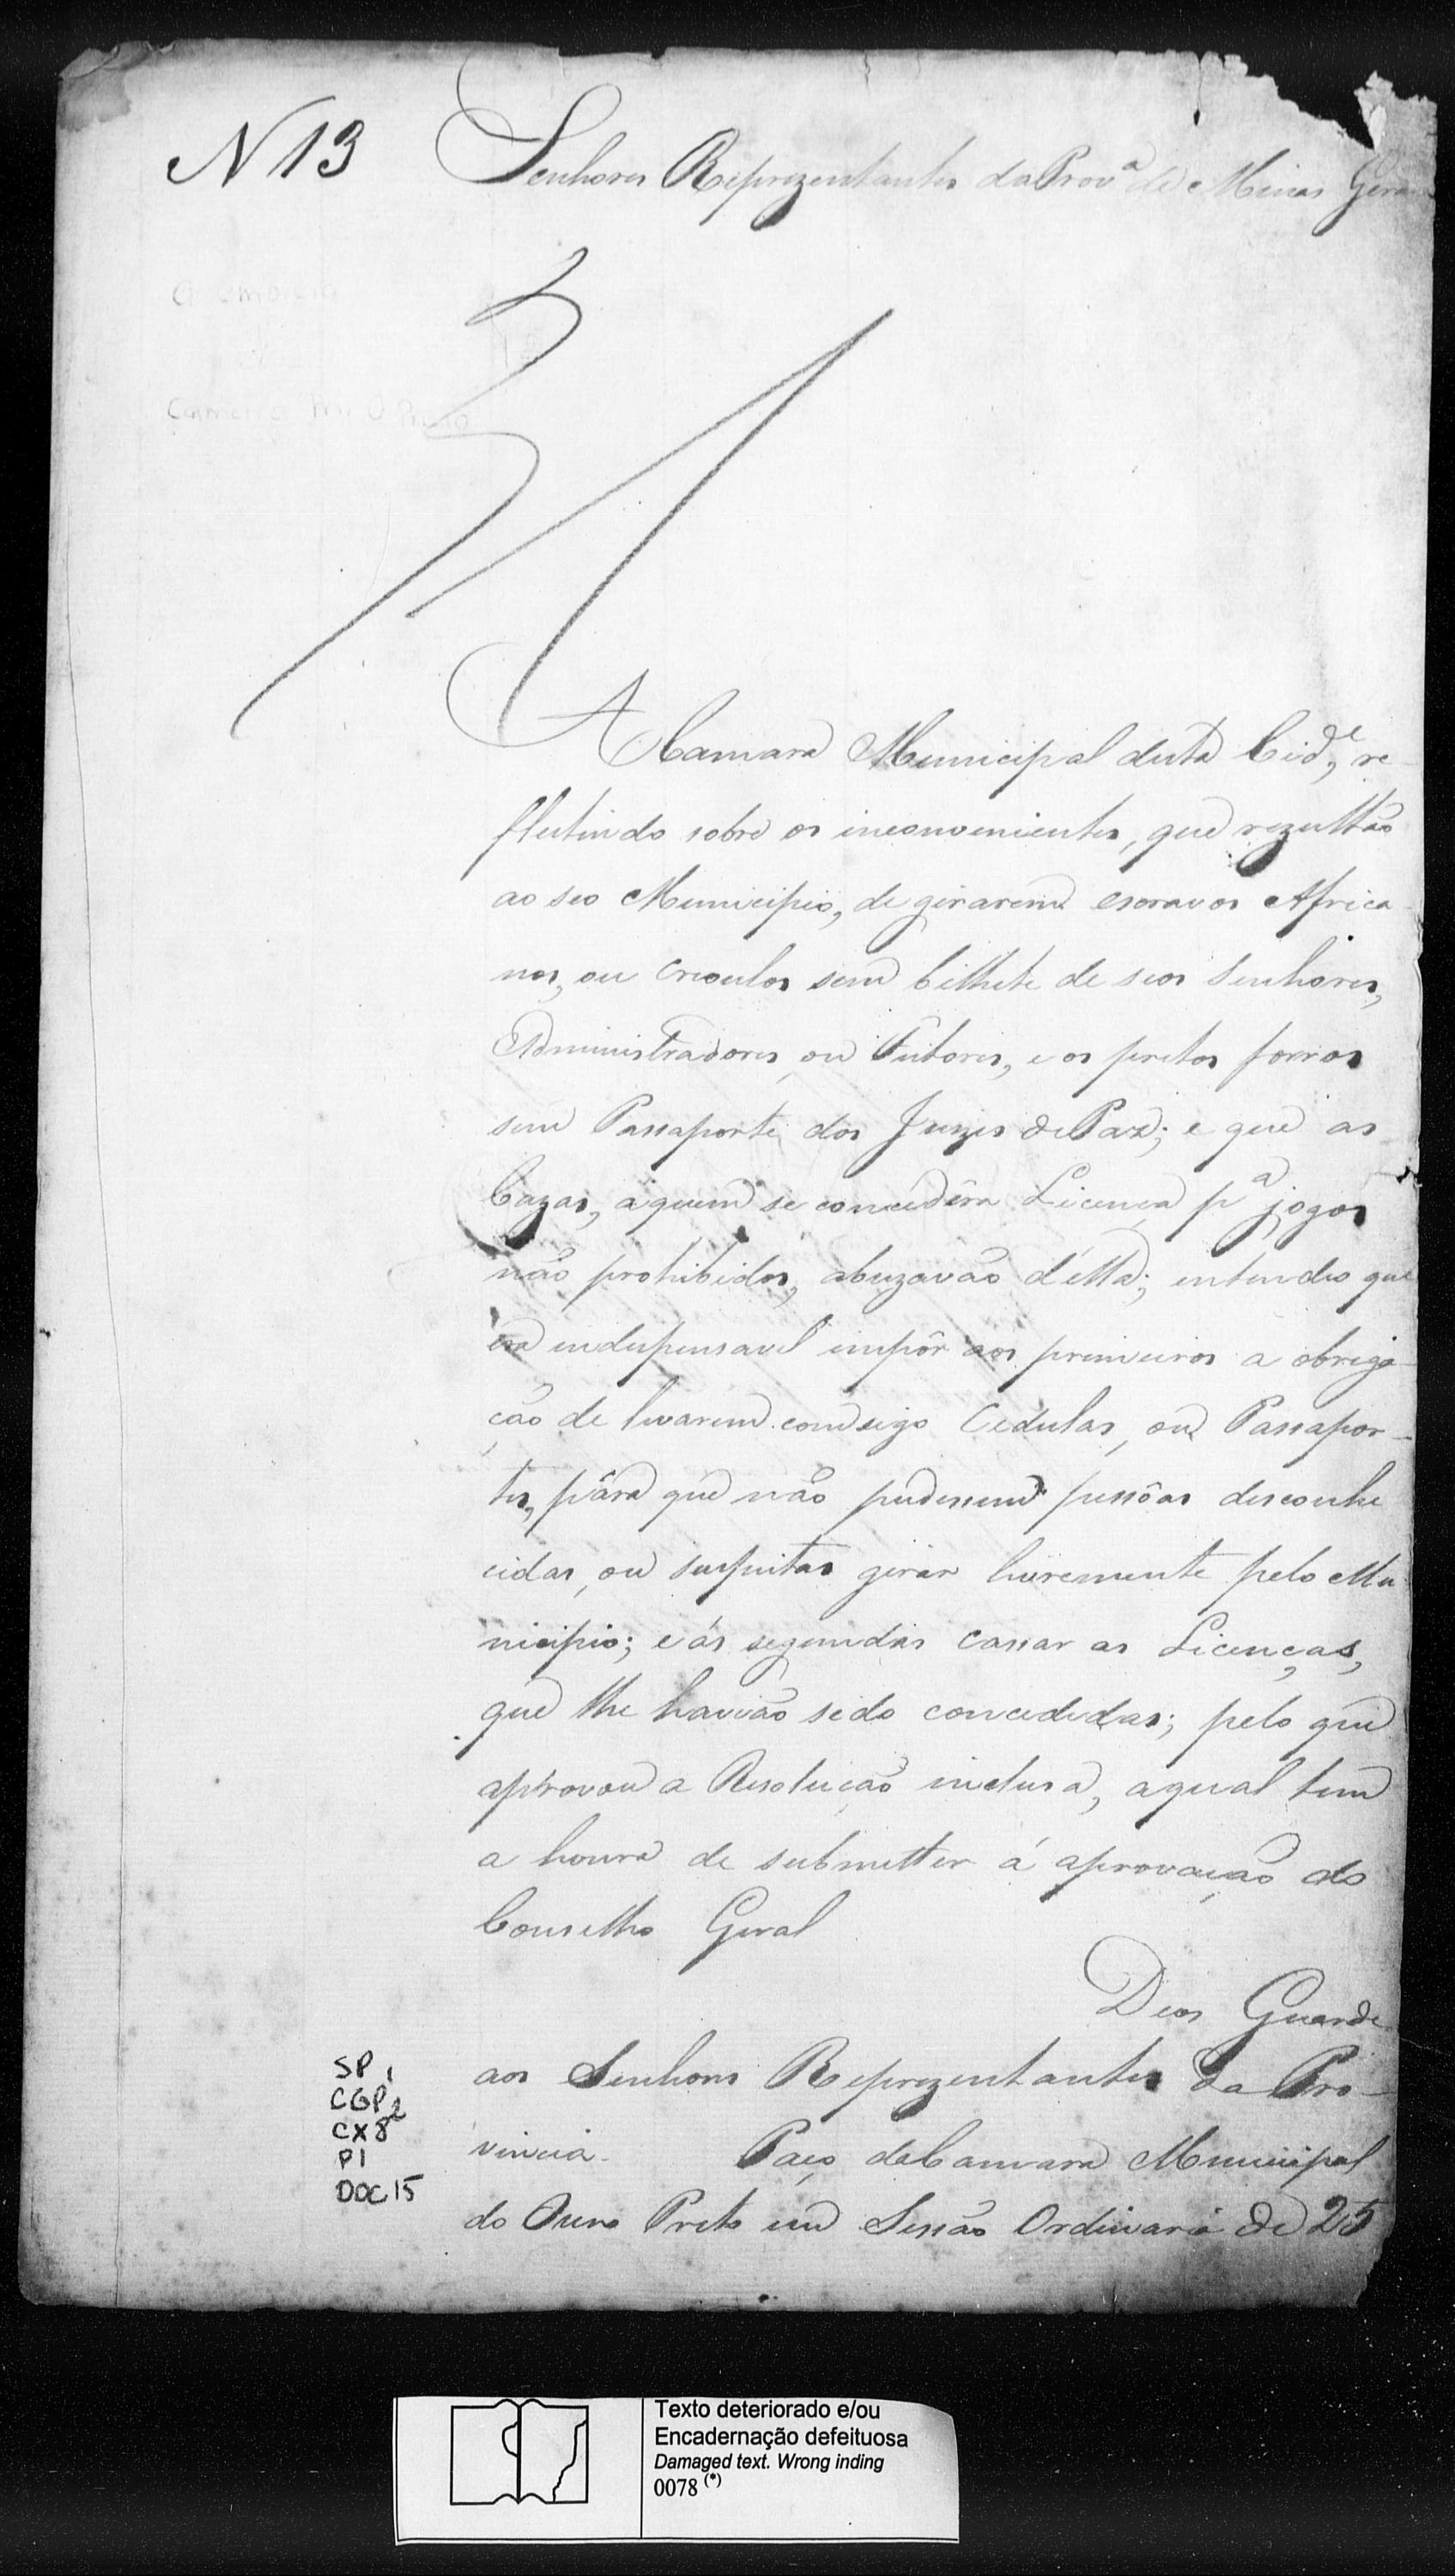 N 13
Senhores Reprezentantes da Prov.ª de Minas Geraes
A Camara Municipal desta Cid.e, re-
flectindo sobre os inconvenientes, que rezultão
ao seo Municipio, de girarem escravos Africa-
nos, ou Creoulos sem bilhete de seos Senhores,
Administradores, ou Tutores, e os pretos forros
sem Passaporte dos Juizes de Paz; e que as
Cazas, aquem se concedêra Licença p.ª jogos
não prohibidos, abuzavão d'ella; entendeo que
era indispensavel impôr aos primeiros a obriga-
ção de levarem comsigo Cedulas, ou Passapor-
tes, pára que não pudessem pessôas desconhe
cidas, ou suspeitas girar livremente pelo Mu-
nicipio; e ás segundas cassar as Licenças,
que lhe havião sido concedidas; pelo que
aprovou a Resolução inclusa, aqual tem
a honra de submetter á aprovação do
Conselho Geral
Deos Guarde
aos Senhores Reprezentantes da Pro-
vincia. Paço da Camara Municipal
do Ouro Preto em Sessão Ordinaria de 25
SP 1
CGP 2
CX 8
P1
DOC 15
Texto deteriorado e/ou
Encadernação defeituosa
Damaged text. Wrong inding
0078 (*)